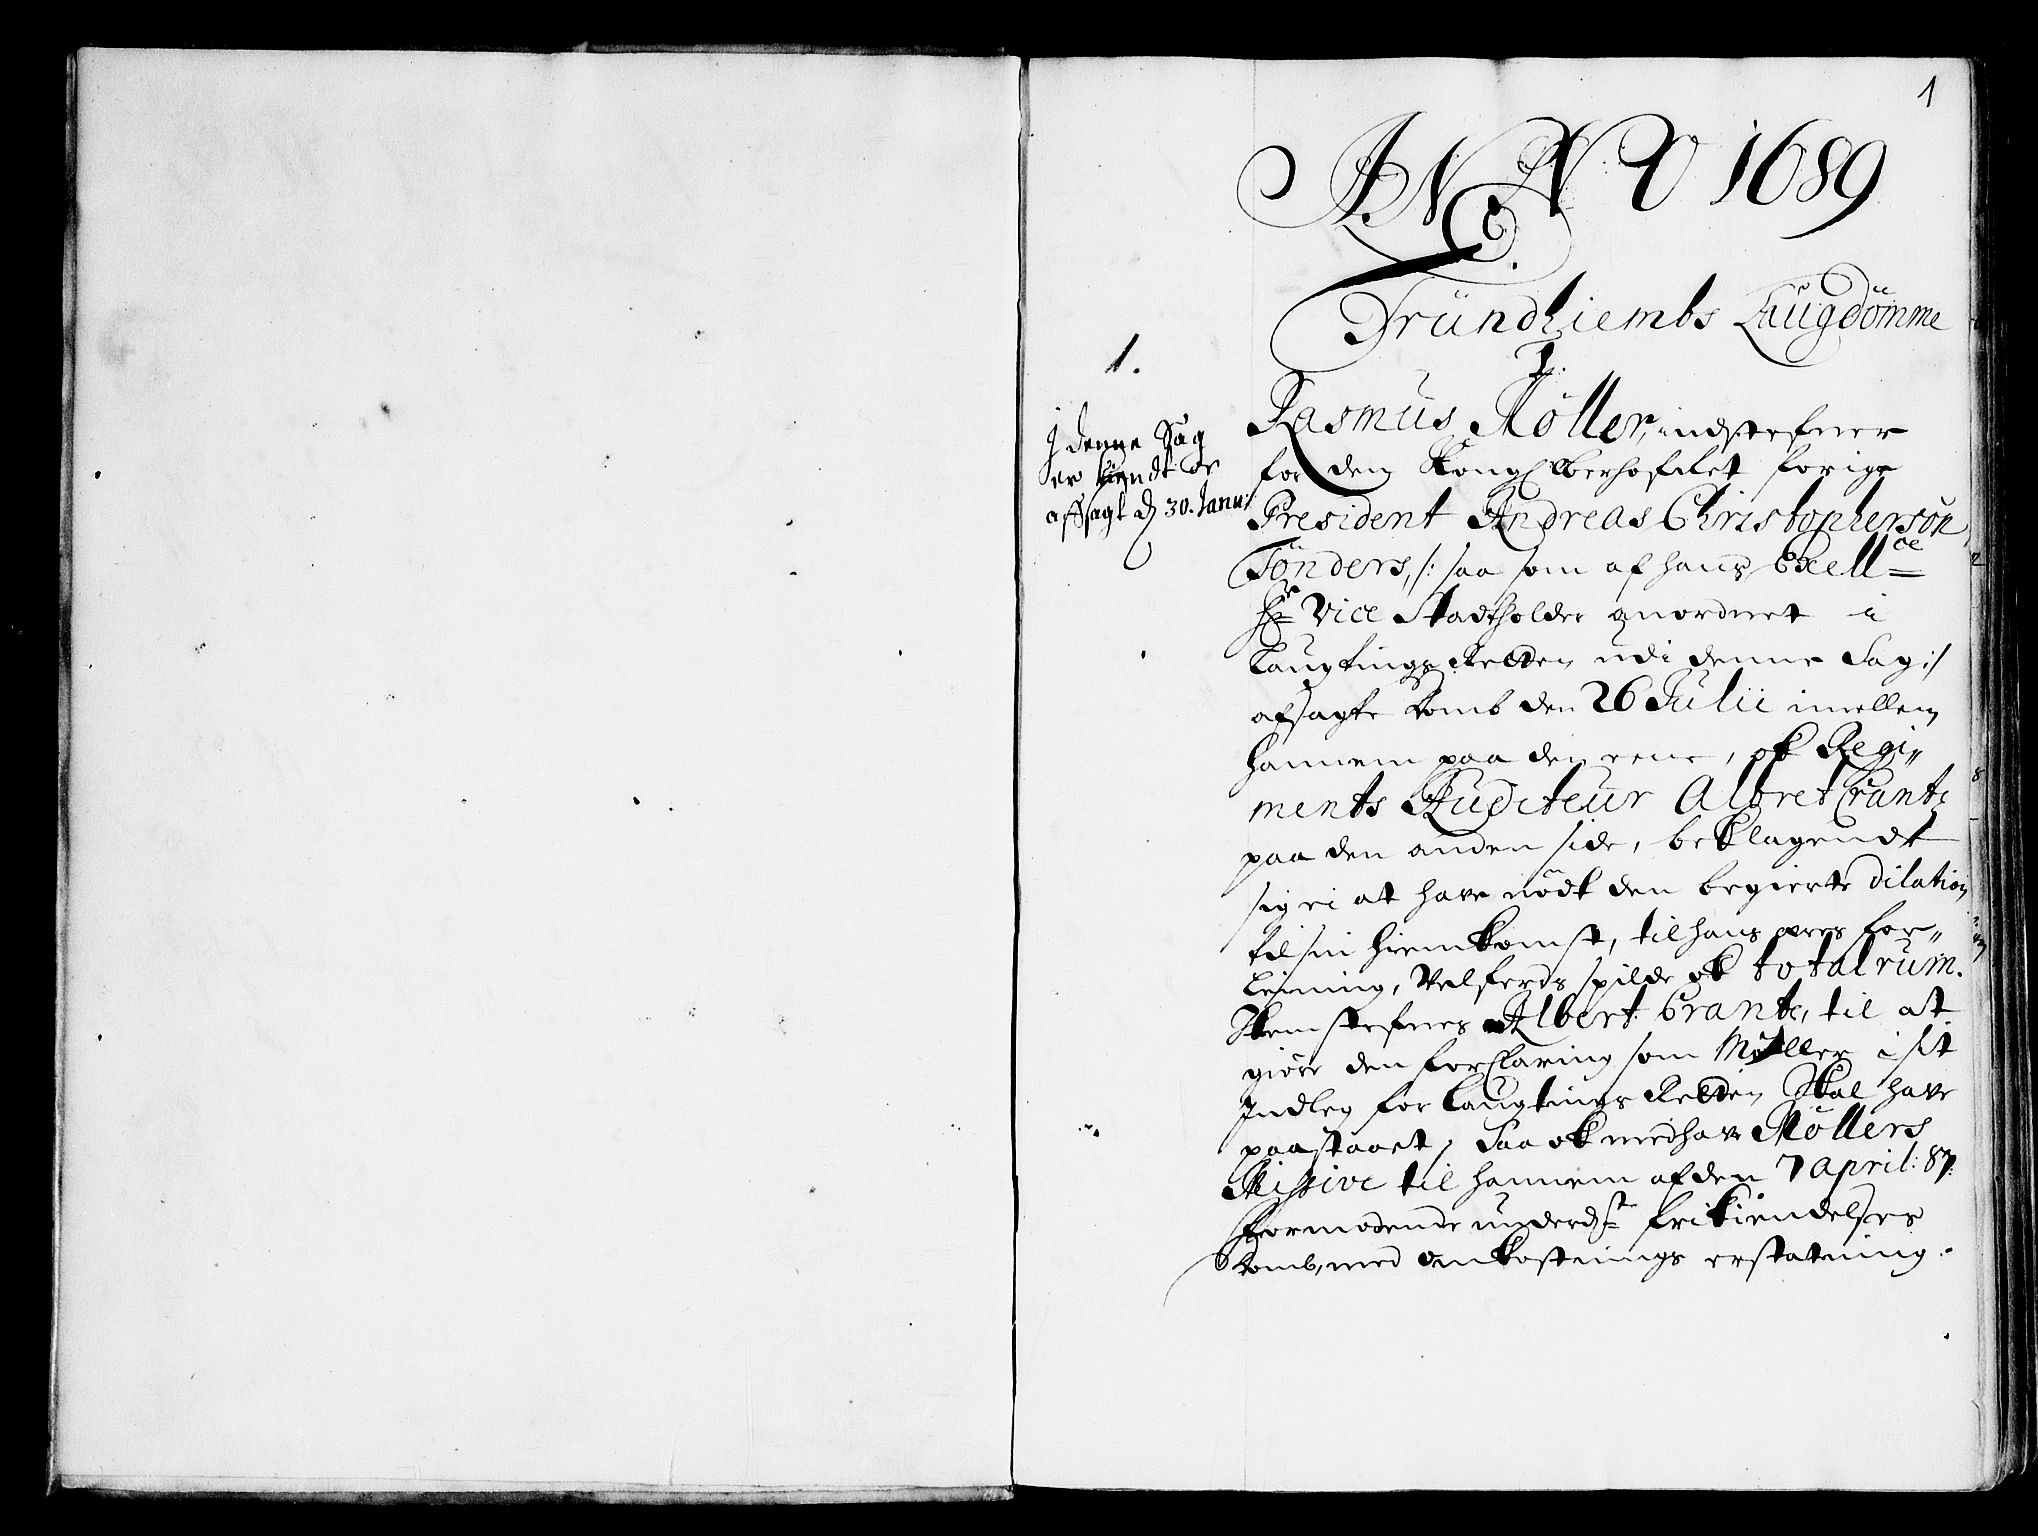 1
ANNO 1689
Trundhiembs Laugdömme
1.
1.
J denne Sag
er kiendt oc
affsagt d 30. Janu:
Rasmus Möller, indstefner
for den Kongl Oberhofret forige
President Andreas Christophersön
Tönders, /: saa som af hans Excell ce
Hr Vice Stadtholder anordnet i
Laugtings Retten udi denne Sag :/
afsagte Domb den 26 Julii imellem
hannem paa den ene, ok Regi„
ments Auditeur Albret Crantz
paa den anden side, beklagendt
sig ei at have nödt den begierte dilation
til sin hiemkomst, til hans æres for„
leining, Velferds spilde ok total ruin.
Item stefnes Albert Crantz, til at
giöre den forclaring som Möller i sit
Indleg for Laugtings Retten Skal have
paastaaet, Saa ok med have Möllers
Missive til hannem af den 7 April: 87:
Formodende underd st frikiendelses
Domb, med omkostnings erstatning.